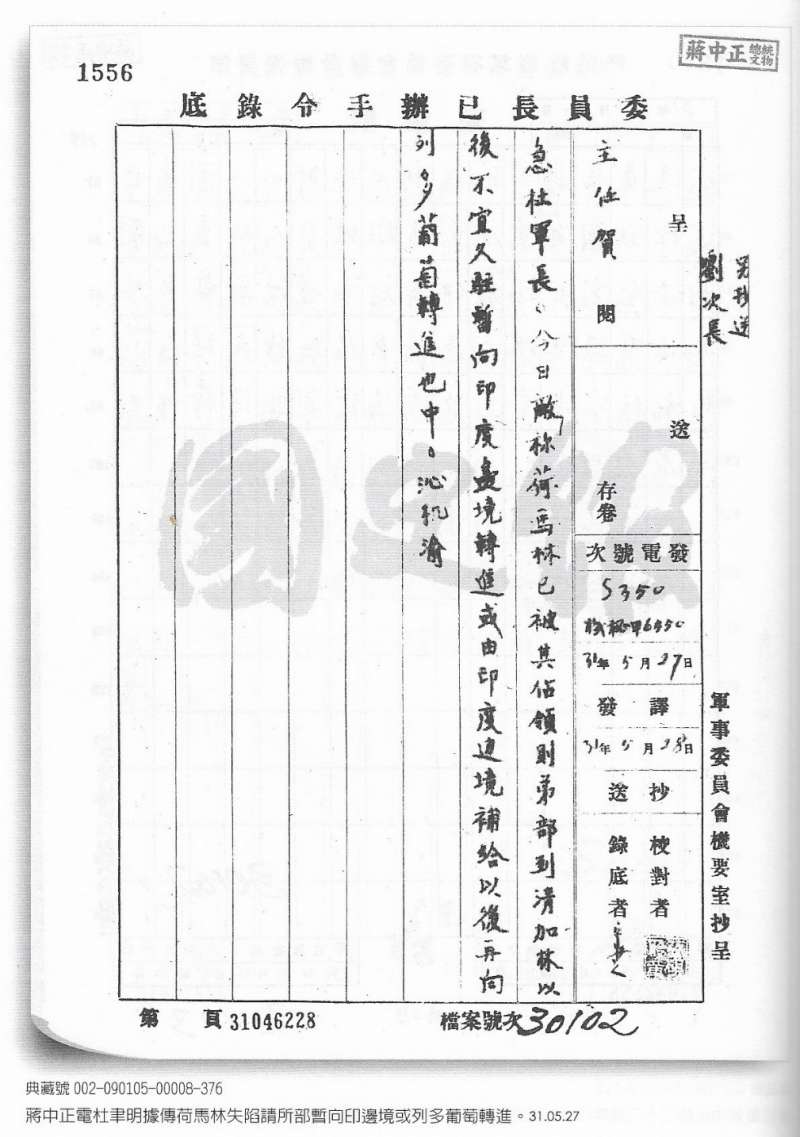 1556
蔣中正總統文物
委員長已辦手令錄底
另抄送
劉次長
呈
主任賀 閱
送
存卷
發電號次
S350
機秘甲6550
31年5月27日
譯發
31年5月28日
抄送
校對者
錄底者
軍事委員會機要室抄呈
急杜軍長。今日敵稱荷馬林已被其佔領則弟部到清加林以
後不宜久駐暫向印度邊境轉進或由印度邊境補給以後再向
列多葡萄轉進也中。沁機渝
國史館
檔案號次30102
第 頁 31046228
典藏號 002-090105-00008-376
蔣中正電杜聿明據傳荷馬林失陷請所部暫向印邊境或列多葡萄轉進。31.05.27